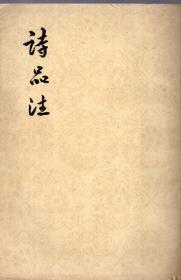 詩品注